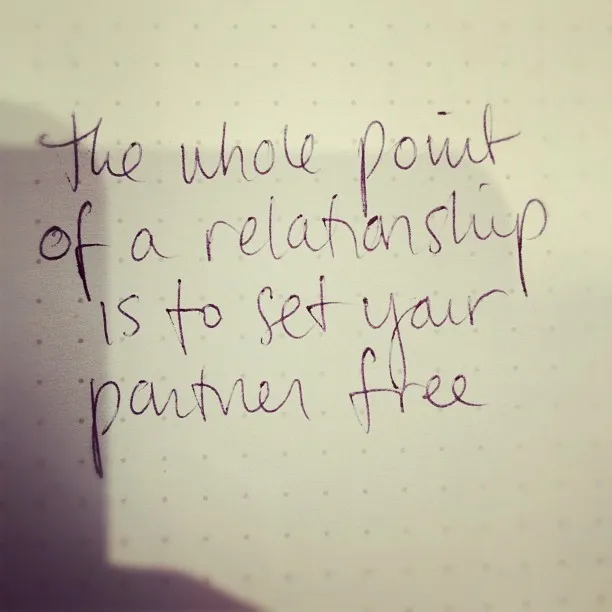 the whole point
of a relationship
is to set your
partner free